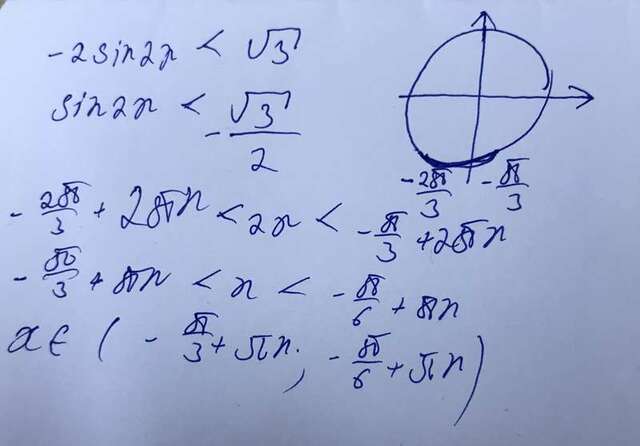 -2sin2x < √3
sin2x < -√3/2
-2π/3 -π/3
-2π/3 + 2πn < 2x < -π/3 + 2πn
-π/3 + πn < x < -π/6 + πn
x ∈ (-π/3 + πn; -π/6 + πn)